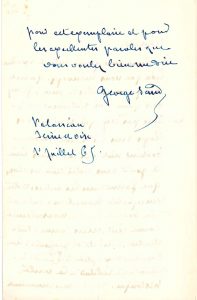 pour cet exemplaire et pour
les excellentes paroles que
vous voulez bien me dire
George Sand
Palaiseau
Seine et oise
1er Juillet 65